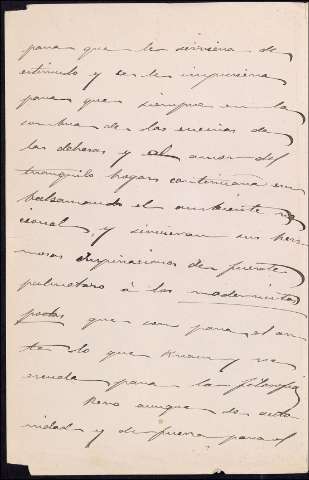 para que le sirviera de
estimulo y se le impusiera
para que siempre en la
sombra de las encinas de
las dehesas y al amor del
tranquilo hogar continuara em
balsamando el ambiente na
cional, y sirvieran sus her
mosas inspiraciones de fuerte
pulmotoro á los modernistas
poetas que son para el ar
te lo que Kraus y su
escuela para la filosofia
Pero aunque de auto
ridad y de fuerza para el